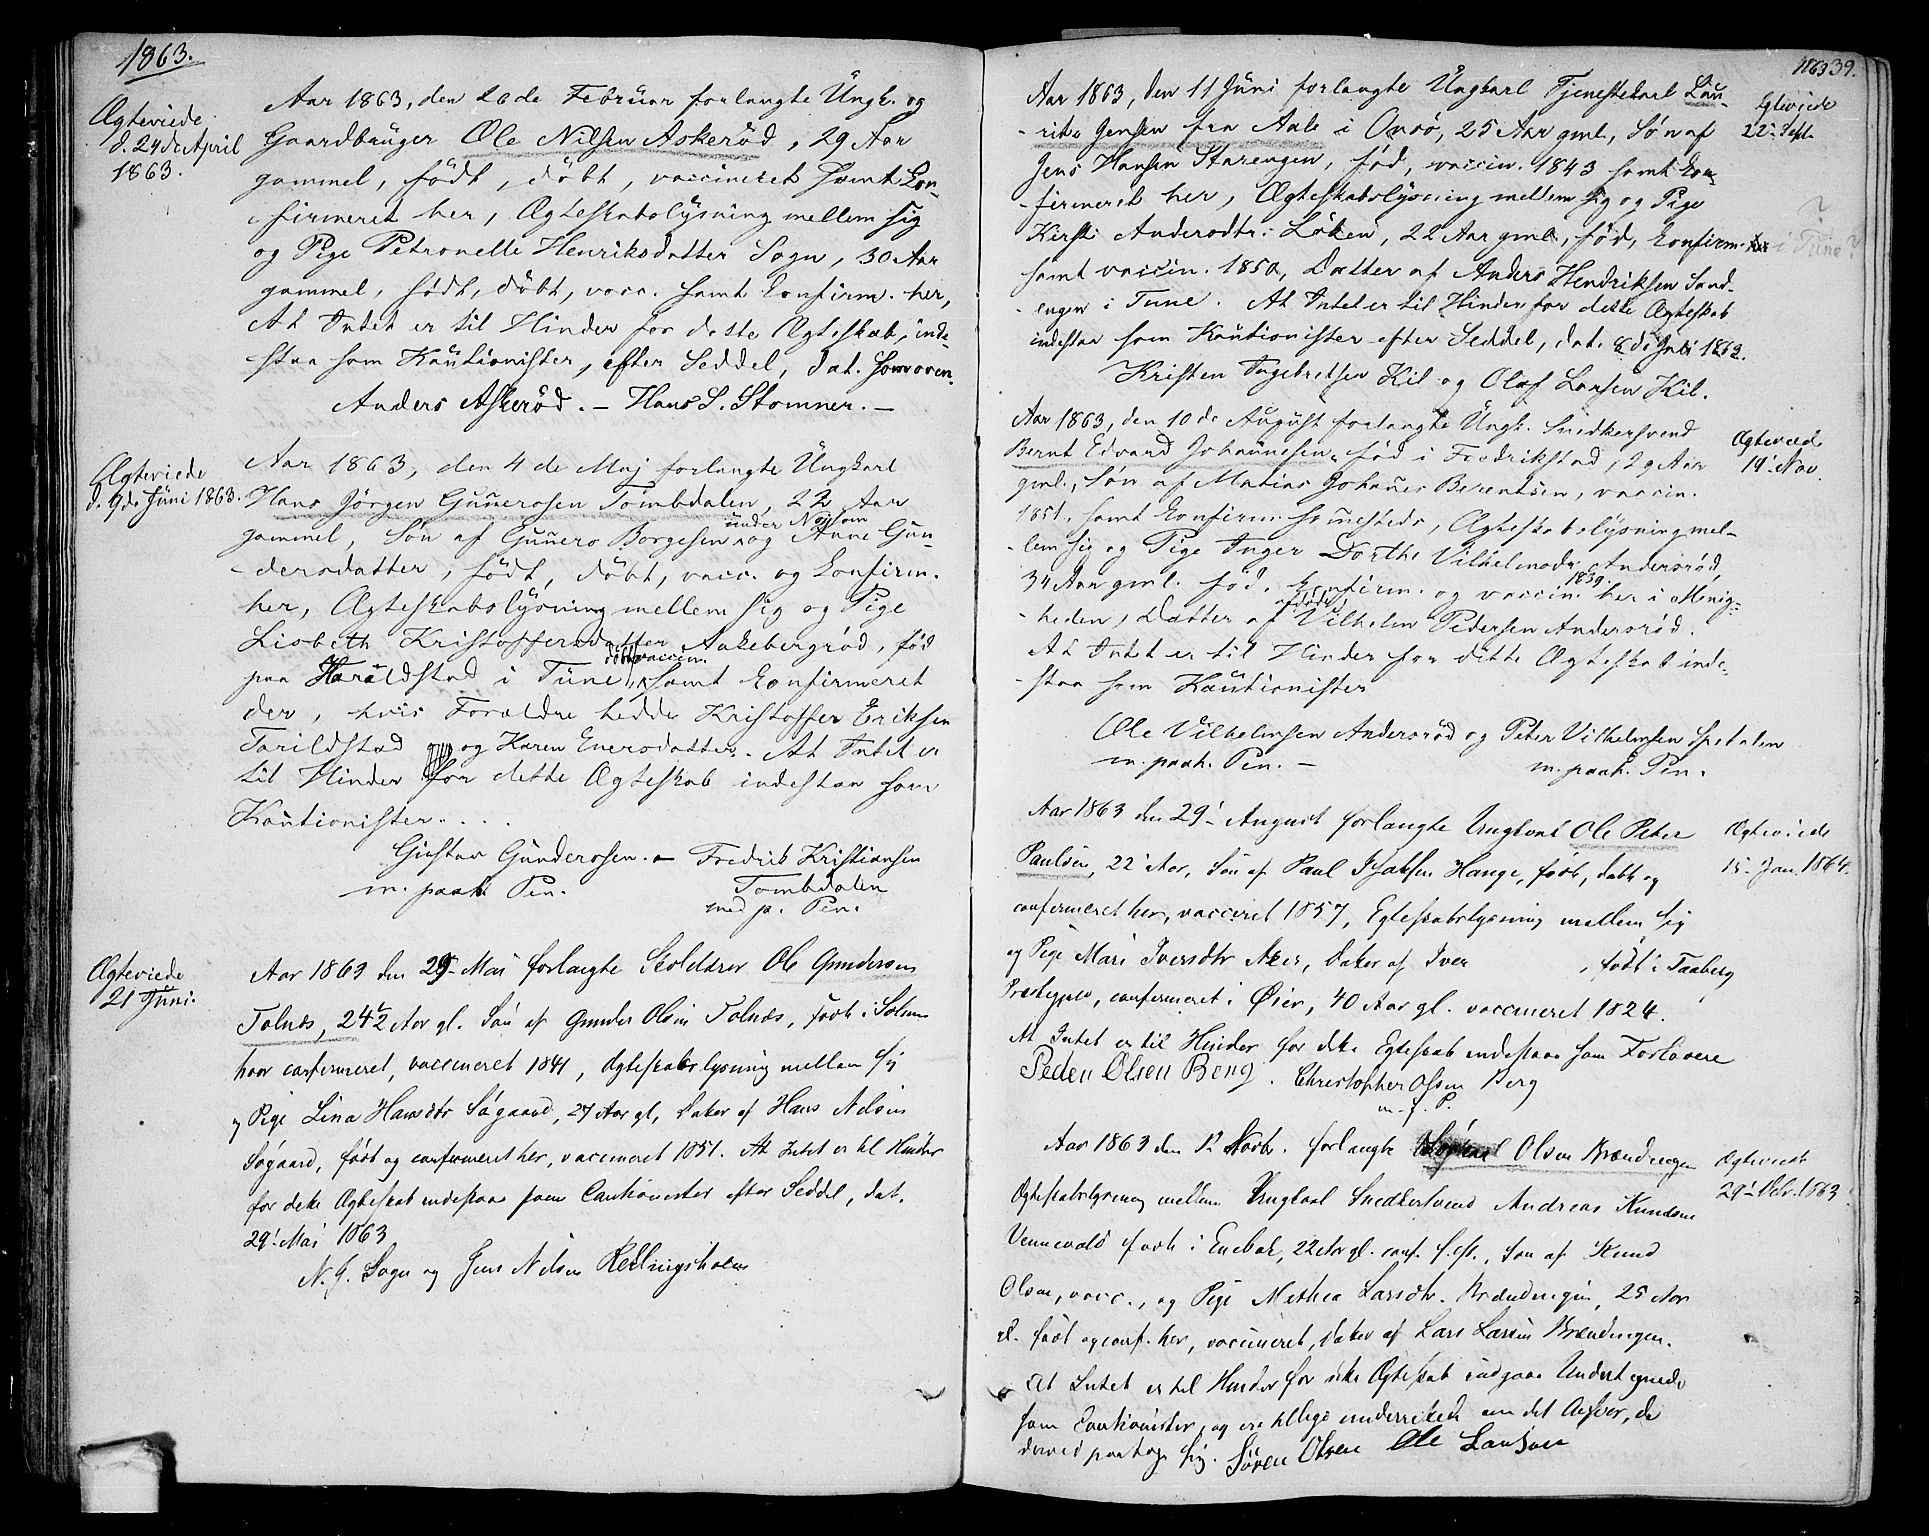 1863.
Ægteviede
d. 24de April
1863.
Aar 1863, den 26de Februar forlangte Ungk. og
Gaardbruger Ole Nilsen Askerød, 29 Aar
gammel, födt, döbt, vaccineret samt Kon-
firmeret her, Ægteskabslysning mellem sig
og Pige Petronelle Henriksdatter Sogn, 30 Aar
gammel, födt, döbt, vacc. samt Konfirm. her,
At Intet er til Hinder for dette Ægteskab, inde-
staa som Kautionister, efter Seddel, dat. som oven.
Anders Askerød. — Hans S. Stomner. —
Ægteviede
d. 9de Juni 1863.
Aar 1863, den 4de Maj forlangte Ungkarl
Hans Jörgen Gunerosen Tombdalen, 22 Aar
gammel, Sön af Gunero Borgesen og Anne Gun-
dersdatter, födt, döbt, vacc. og Konfirm.
her, Ægteskabslysning mellem sig og Pige
Lisbeth Kristoffersdatter Aakebergröd, föd
paa Haraldstad i Tune, döbt, vaccin. samt Konfirmeret
der, hvis Foraldre hedde Kristoffer Eriksen
Tarildstad og Karen Enersdatter. At Intet er
til Hinder for dette Ægteskab indestaa som
Kautionister. . . .
Gustav Gunderosen. — Fredrik Kristiansen
m. paah. Pen. Tombdalen
med p. Pen.
Ægteviede
21 Juni.
Aar 1863 den 29. Mai forlangte Skolelærer Ole Gundersen
Tolnæs, 24½ Aar gl. Sön af Gunder Olsen Tolnæs, födt i Solum
hvor confirmeret, vaccineret 1841, Ægteskabslysning mellem sig
og Pige Lina Hansdtr Sögaard, 27 Aar gl, Datter af Hans Nilsen
Sögaard, födt og confirmeret her, vaccineret 1851. At Intet er til Hinder
for dette Ægteskab indestaae som Cautionister efter Seddel, dat.
29. Mai 1863
N. G. Sogn og Jens Nilsen Rellingsholm
1863 39.
Aar 1863, den 11 Juni forlangte Ungkarl Tjenestekarl Lau-
rits Jensen fra Aale i Onsö, 25 Aar gml, Sön af
Jens Hansen Starengen, föd, vaccin. 1843 samt Kon-
firmeret her, Ægteskabslysning mellem sig og Pige
Kirsti Andersdtr. Löken, 22 Aar gml, föd, Konfirm. i Tune?
samt vaccin. 1850, Datter af Anders Hendriksen Sand-
engen i Tune. At Intet er til Hinder for dette Ægteskab
indestaa som Kautionister efter Seddel, dat. 8de Juli 1862.
Kristen Ingebretsen Kil og Olaf Larsen Kil.
Ægteviede
22. Sept
Aar 1863, den 10de August forlangte Ungk. Snedkersvend
Bernt Edvard Johannesen, föd i Fredrikstad, 29 Aar
gml, Sön af Matias Johanes Berentsen, vaccin.
1851, samt Konfirm. sammesteds, Ægteskabslysning mel-
lem sig og Pige Inger Dorthe Vilhelmsdr. Andersröd,
34 Aar gml. föd, Konfirm. og vaccin. 1839 her i Menig-
heden, Datter af afdöde Vilhelm Pedersen Andersröd.
At Intet er til Hinder for dette Ægteskab inde-
staa som Kautionister
Ole Vilhelmsen Andersröd og Peter Vilhelmsen Spetalen
m. paah. Pen. — m. paah. Pen.
Ægteviede
19. Nov
Aar 1863 den 29. August forlangte Ungkarl Ole Peter
Paulsen, 22 Aar, Sön af Paul Isaksen Hauge, födt, döbt og
confirmeret her, vacceret 1857, Egteskabslysning mellem sig
og Pige Mari Iversdtr Aker, Datter af Iver , födt i Faaberg
Præstegjeld, confirmeret i Öier, 40 Aar gl. vaccineret 1824.
At Intet er til Hinder for dette Egteskab indestaae som Forlovere
Peder Olsen Berg. Christopher Olsen Berg
m. f. P.
Ægteviede
15. Jan. 1864.
Aar 1863 den 12 Novbr. forlangte Olsen Brændengen
Ægteskabslysning mellem Ungkarl Snedkersvend Andreas Knudsen
Vennevold födt i Enebak, 22 Aar gl. conf. s. st., Sön af Knud
Olsen, vacc., og Pige Mathea Larsdtr. Brændengen, 25 Aar
gl. födt og conf. her, vaccineret, Datter af Lars Larsen Brændengen.
At Intet er til Hinder for dette Ægteskab indgaae Undertegnede
som Cautionister, og ere tillige underrettede om det Ansvar, de
derved paatage sig. Sören Olsen Ole Larsen
Ægteviede
29. Debr. 1863